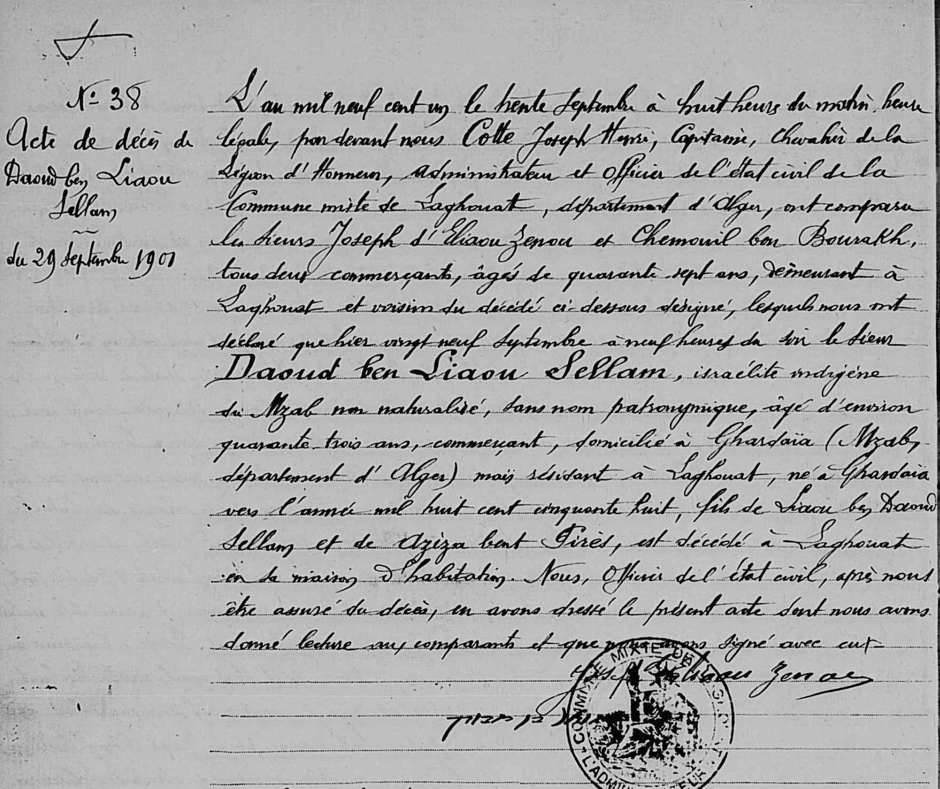 N° 38
Acte de décès de
Daoud ben Liaou
Sellam
du 29 Septembre 1901
L'an mil neuf cent un le trente Septembre à huit heures du matin, heure
légale, par devant nous Cotte Joseph Henri, Capitaine, Chevalier de la
Légion d'Honneur, Administrateur et Officier de l'état civil de la
Commune mixte de Laghouat, département d'Alger, ont comparu
les sieurs Joseph d'Eliaou Zenou et Chemouil ben Bourakh,
tous deux commerçants, âgés de quarante sept ans, demeurant à
Laghouat et voisins du décédé ci-dessous designé, lesquels nous ont
déclaré que hier vingt neuf Septembre à neuf heures du soir le sieur
Daoud ben Liaou Sellam, israélite indigène
du Mzab non naturalisé, sans nom patronymique, âgé d'environ
quarante-trois ans, commerçant, domicilié à Ghardaïa (Mzab,
département d'Alger) mais résidant à Laghouat, né à Ghardaïa
vers l'année mil huit cent cinquante huit, fils de Liaou ben Daoud
Sellam et de Aziza bent Pires, est décédé à Laghouat
en sa maison d'habitation. Nous, Officier de l'état civil, après nous
être assuré du décès, en avons dressé le présent acte dont nous avons
donné lecture aux comparants et que nous avons signé avec eux
Joseph Eliaou Zenou
COMMUNE MIXTE DE LAGHOUAT